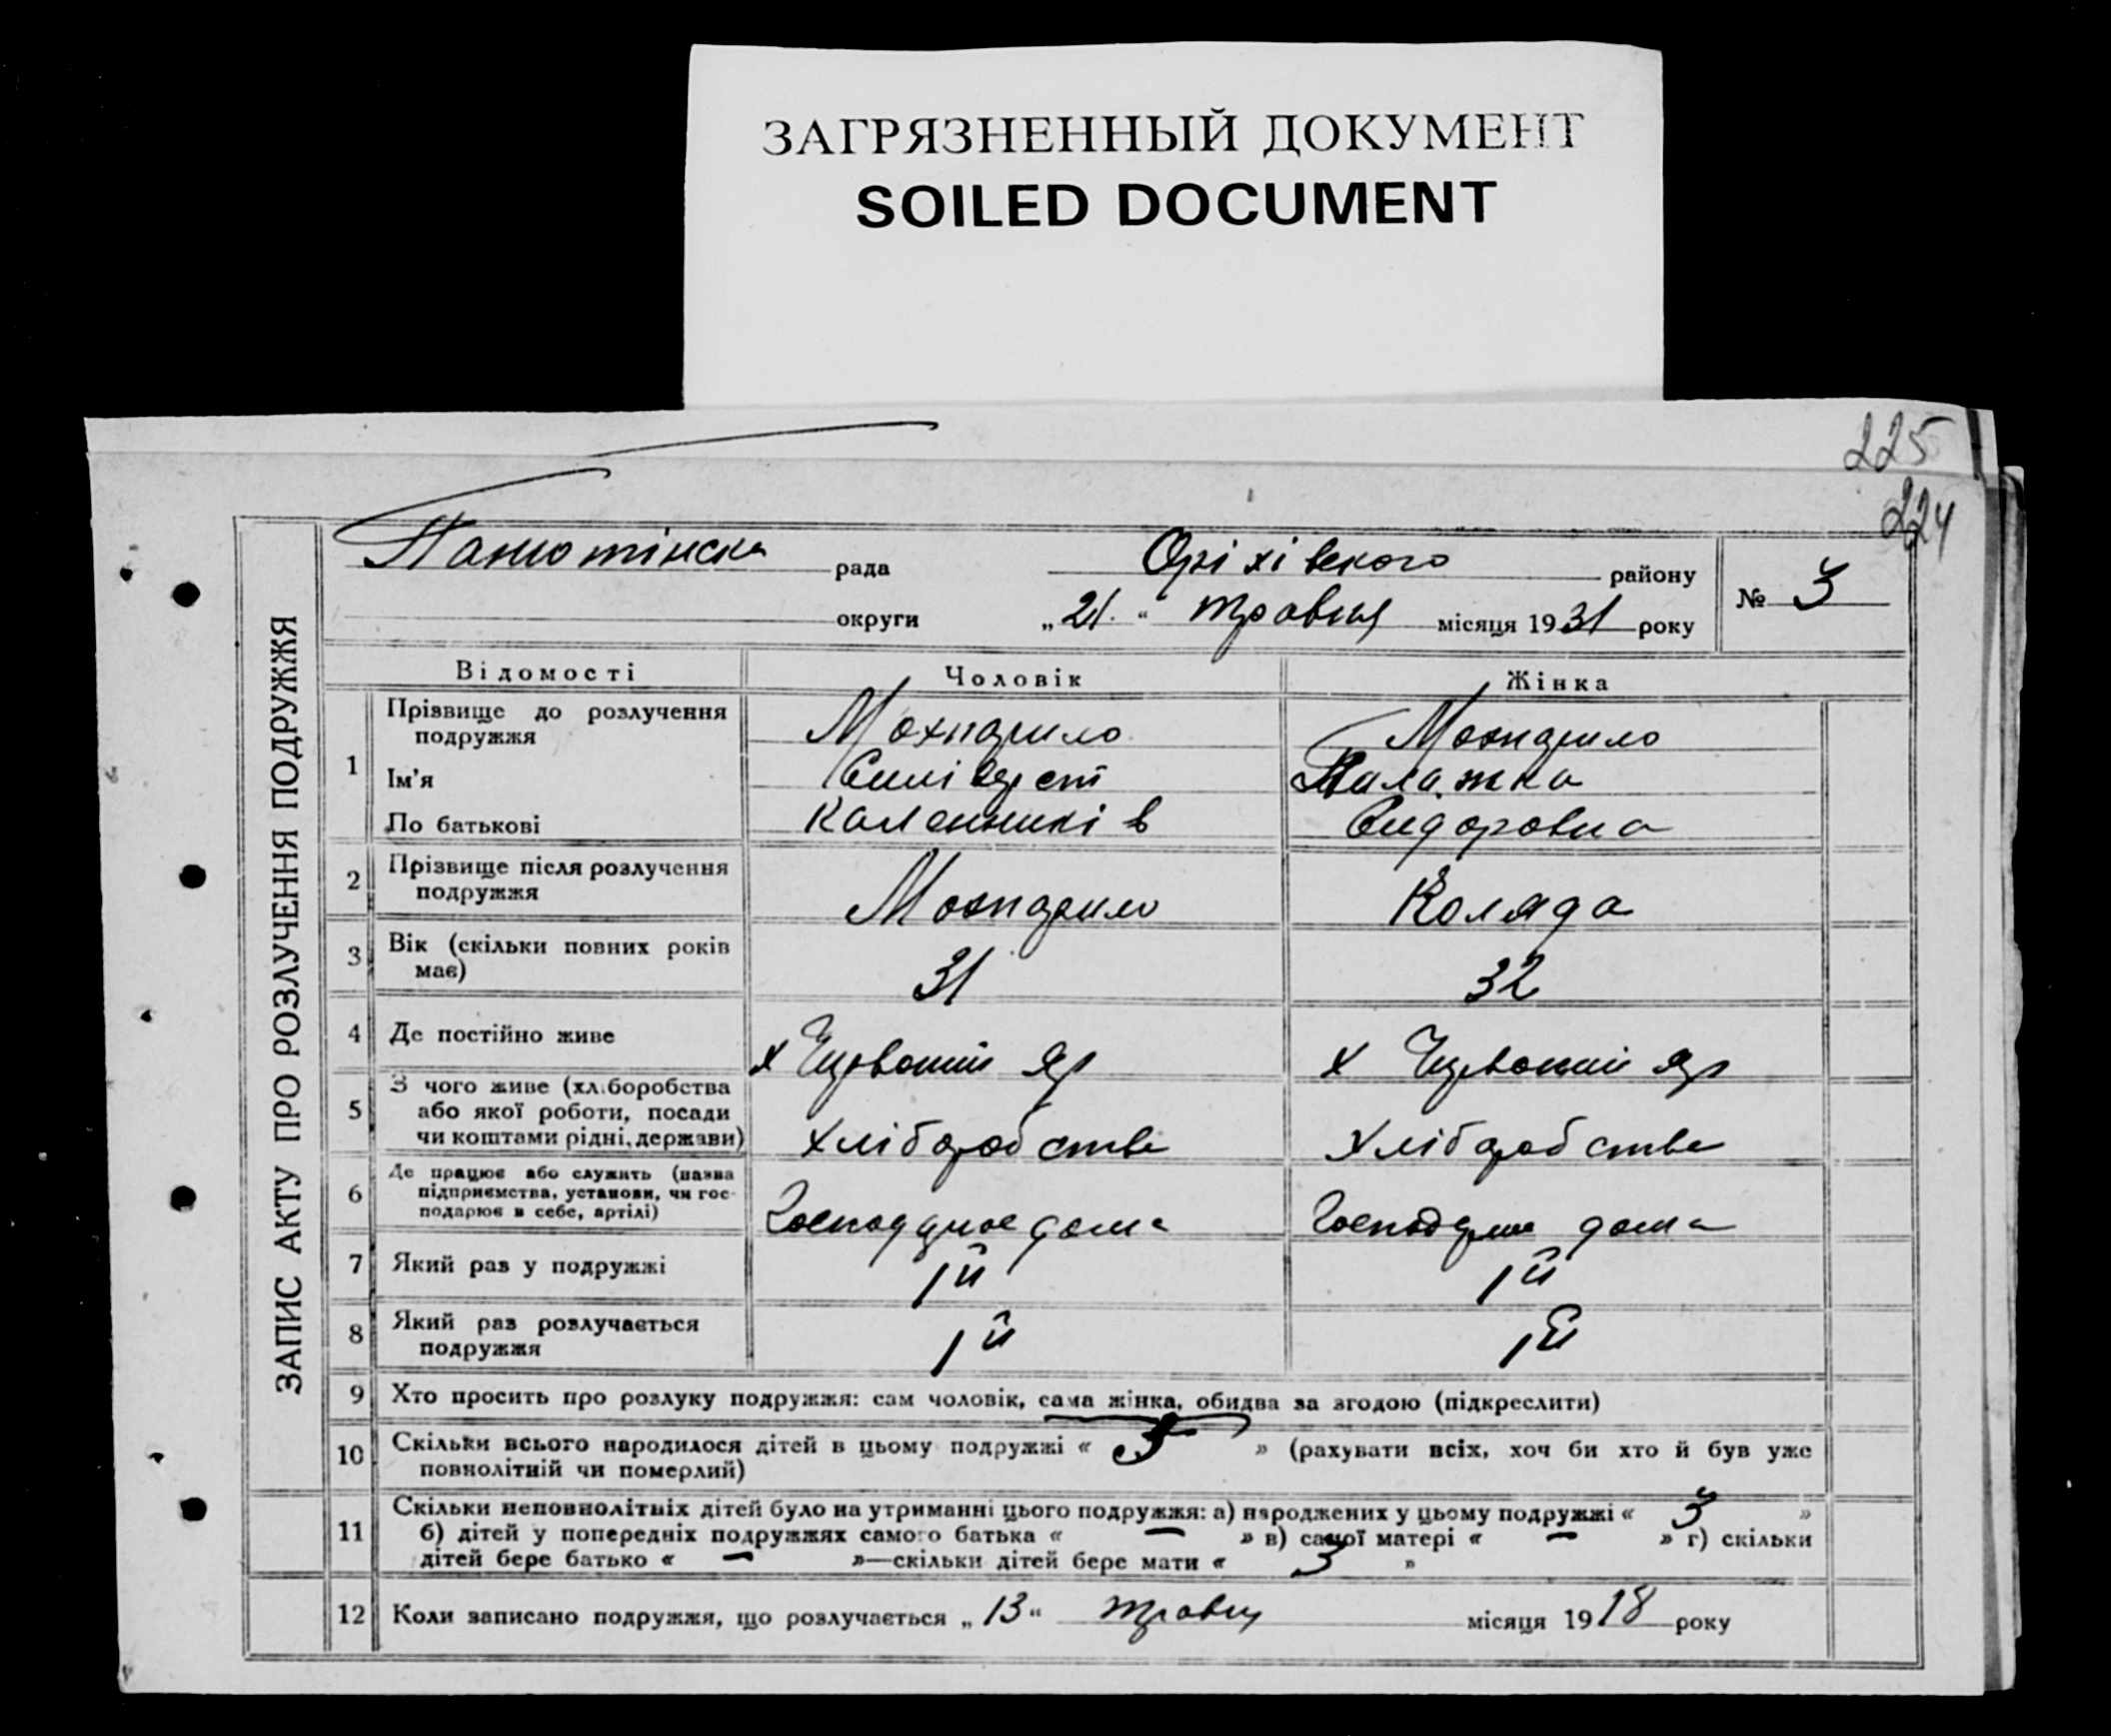 ЗАГРЯЗНЕННЫЙ ДОКУМЕНТ
SOILED DOCUMENT
225
224
ЗАПИС АКТУ ПРО РОЗЛУЧЕННЯ ПОДРУЖЖЯ
Панютінска рада Оріхівского району № 3
округи „21.“ травня місяця 1931 року
Відомості Чоловік Жінка
1 Прізвище до розлучення подружжя Мохнарило Мохнарило
Ім'я Силіверст Палажка
По батькові Каленників Сидоровна
2 Прізвище після розлучення подружжя Мохнарило Коляда
3 Вік (скільки повних років має) 31 32
4 Де постійно живе х Червоний Яр х Червоний Яр
5 З чого живе (хліборобства або якої роботи, посади чи коштами рідні, держави) Хліборобства Хліборобства
6 Де працює або служить (назва підприємства, установи, чи господарює в себе, артілі) Господарює дома Господарює дома
7 Який раз у подружжі 1й 1й
8 Який раз розлучається подружжя 1й 1й
9 Хто просить про розлуку подружжя: сам чоловік, сама жінка, обидва за згодою (підкреслити)
10 Скільки всього народилося дітей в цьому подружжі « » (рахувати всіх, хоч би хто й був уже
повнолітній чи померлий)
11 Скільки неповнолітніх дітей було на утриманні цього подружжя: а) народжених у цьому подружжі « 3 »
б) дітей у попередніх подружжях самого батька « — » в) самої матері « — » г) скільки
дітей бере батько « — »—скільки дітей бере мати « 3 »
12 Коли записано подружжя, що розлучається „13“ травня місяця 1918 року